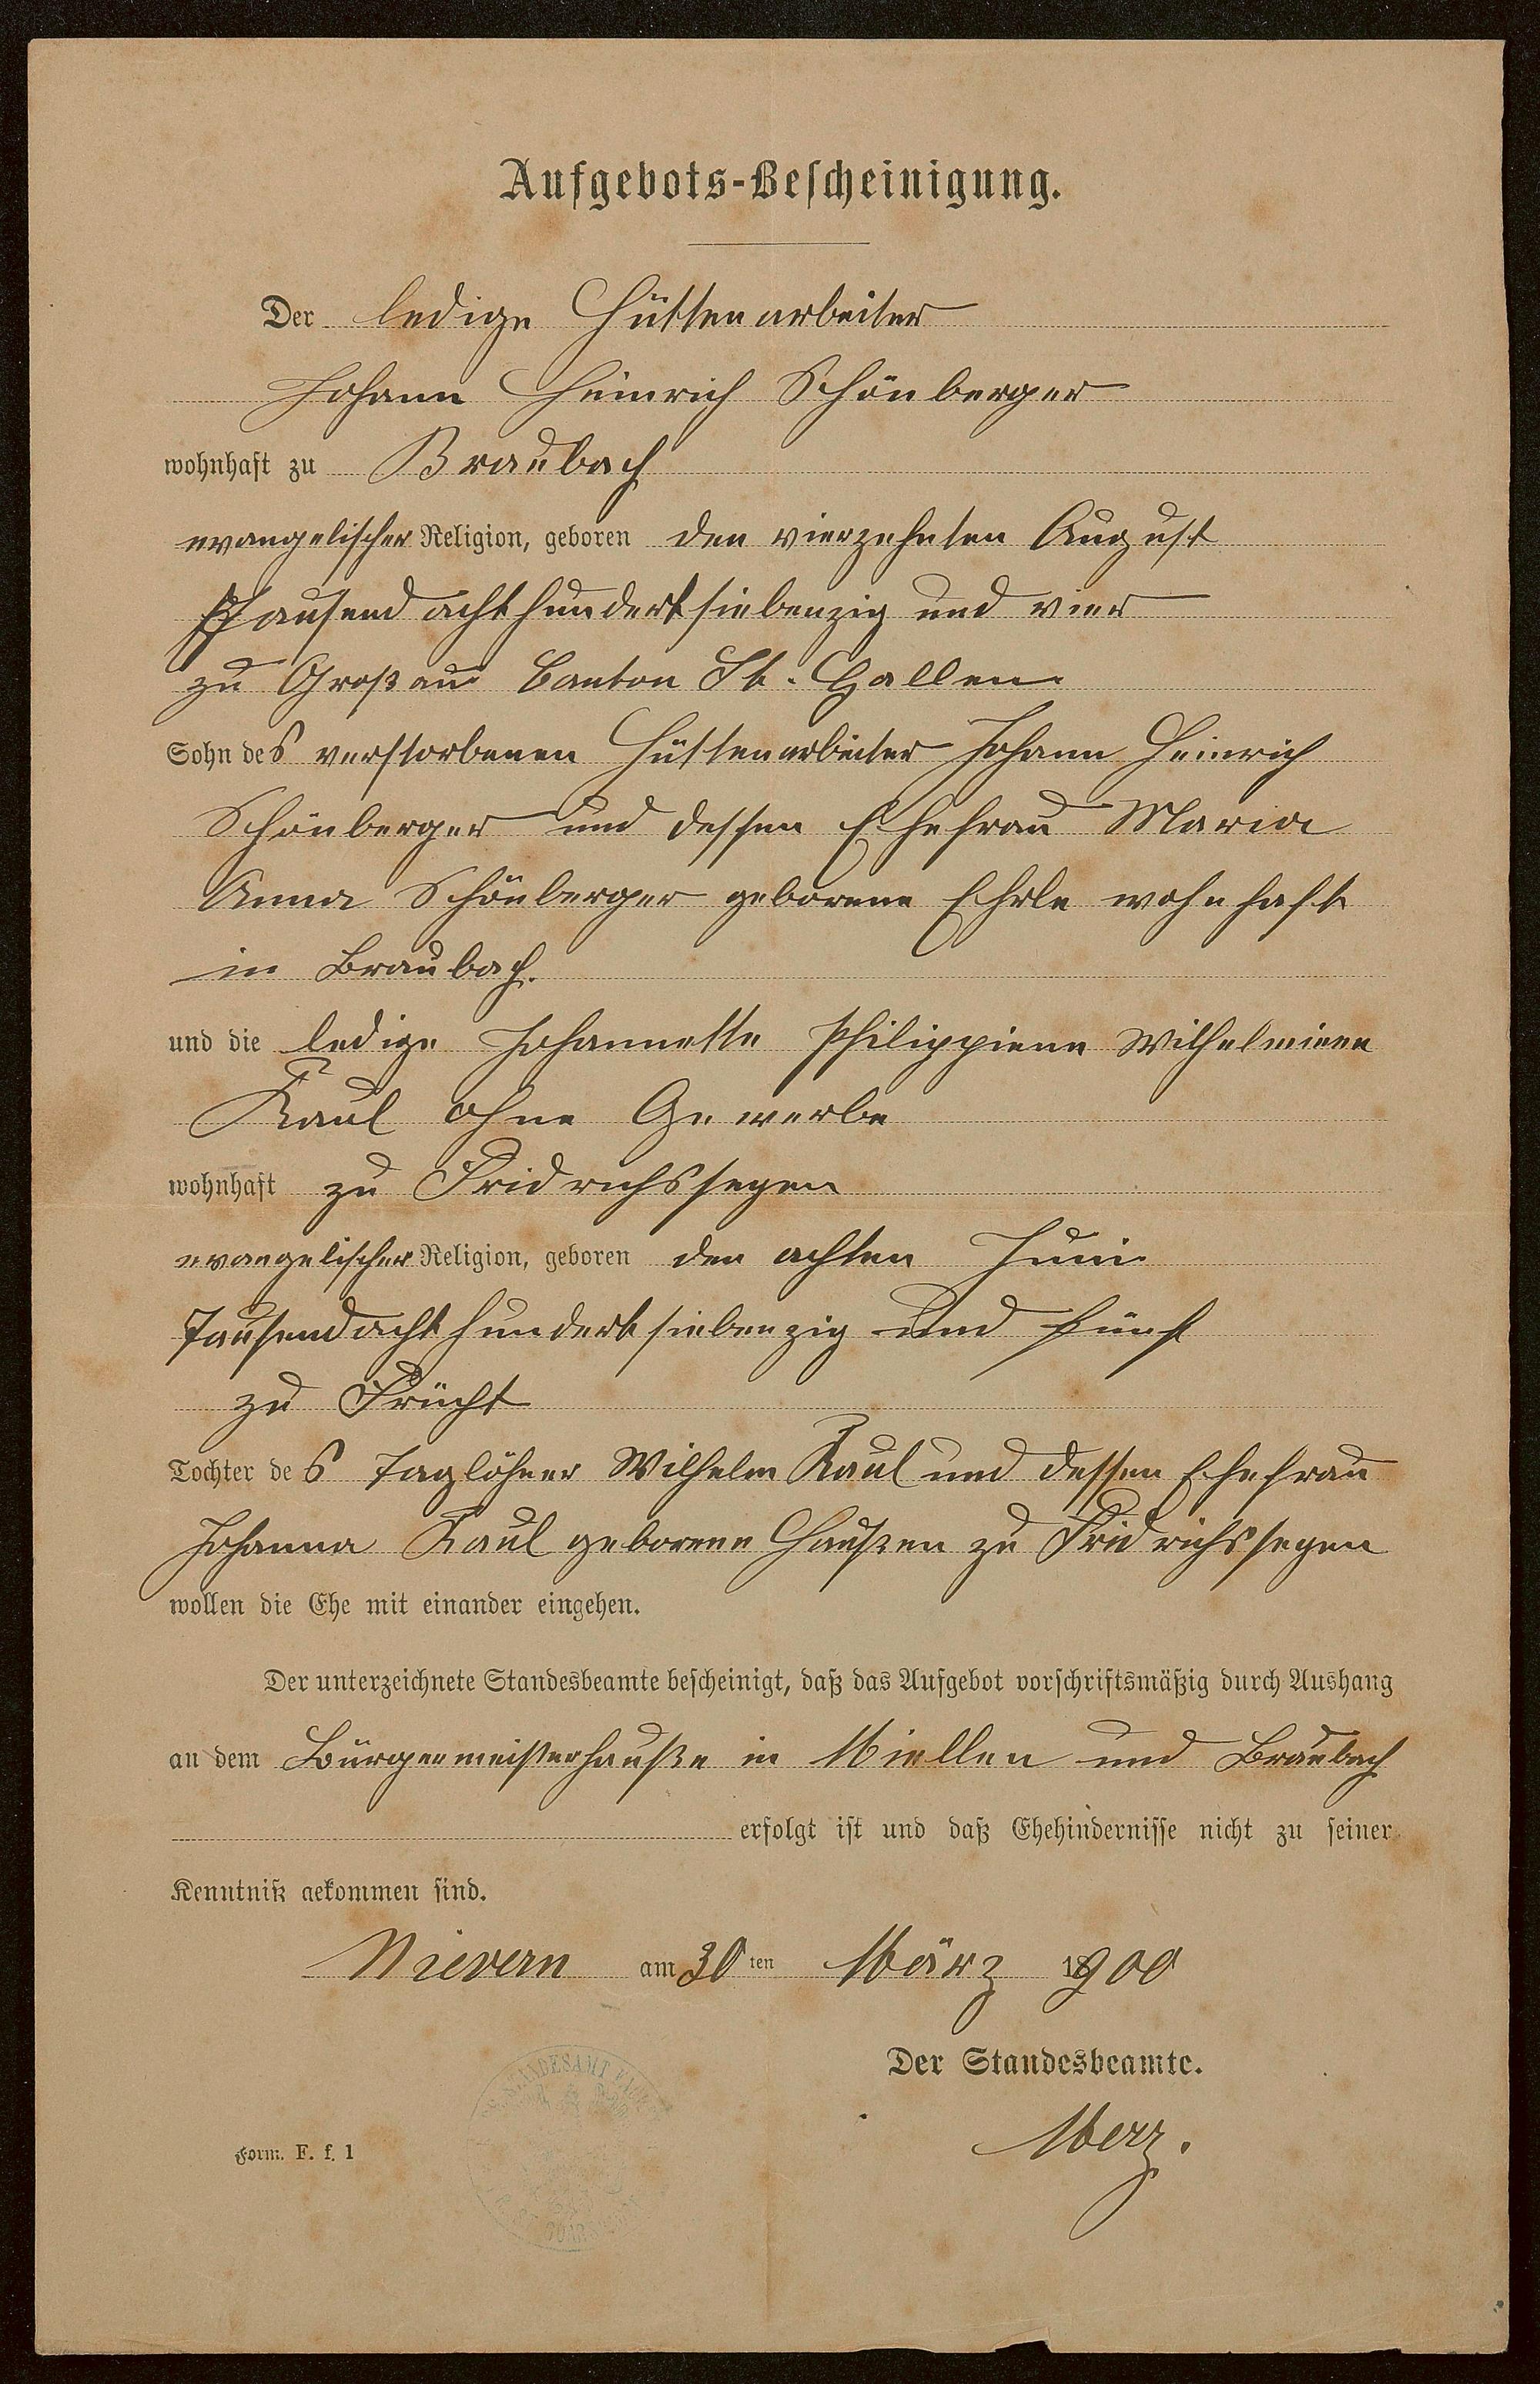 Aufgebots-Bescheinigung.
Der ledige Hüttenarbeiter
Johann Heinrich Schönberger
wohnhaft zu Braubach
evangelischer Religion, geboren den vierzehnten August
Thausend acht hundert siebenzig und vier
zu Großau Canton St. Gallen
Sohn des verstorbenen Hüttenarbeiter Johann Heinrich
Schönberger und dessen Ehefrau Maria
Anna Schönberger geborene Ehrle wohnhaft
in Braubach.
und die ledige Johannette Philippiene Wilhelmiene
Kaul ohne Gewerbe
wohnhaft zu Fridrichssegen
evangelischer Religion, geboren den achten Juni
Tausendacht hundert siebenzig und fünf
zu Frücht
Tochter des Taglöhner Wilhelm Kaul und dessen Ehefrau
Johanna Kaul geborene Haußen zu Fridrichssegen
wollen die Ehe mit einander eingehen.
Der unterzeichnete Standesbeamte bescheinigt, daß das Aufgebot vorschriftsmäßig durch Aushang
an dem Bürgermeisterhauße in Miellen und Braubach
erfolgt ist und daß Ehehindernisse nicht zu seiner
Kenntniß gekommen sind.
Nievern am 30ten März 1900
Der Standesbeamte.
Merz.
Form. F. f. 1
STANDESAMT